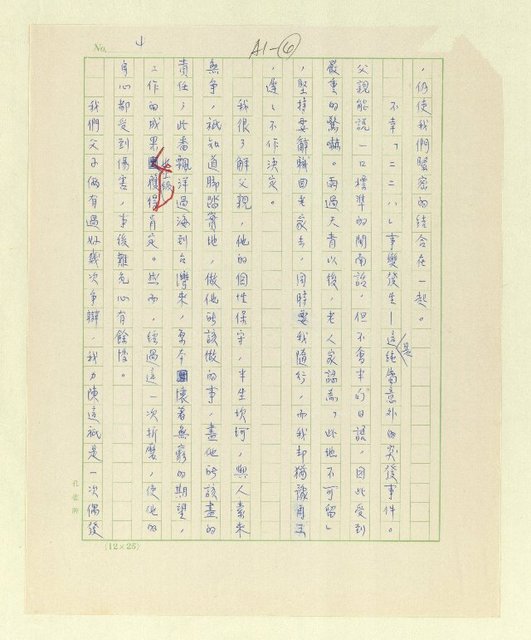 No. 4
A1-⑥
，仍使我們緊密的結合在一起。
不幸，「二二八」事變發生—這是純屬意外的突發事件。
父親能說一口標準的閩南話，但不會半句日語，因此受到
嚴重的驚嚇。雨過天青以後，老人家認為「此地不可留」
，堅持要辭職回老家去，同時要我隨行，而我却猶豫再三
，遲遲不作決定。
我很了解父親，他的個性保守，半生坎坷，與人素來
無爭，祇知道脚踏實地，做他所該做的事，盡他所該盡的
責任，此番飄洋過海到台灣來，是懷着無窮的期望，
工作的成果獲得肯定。然而，經過這一次折磨，使他的
身心都受到傷害，事後難免心有餘悸。
我們父子倆有過好幾次爭辯，我力陳這祇是一次偶發
(12×25)